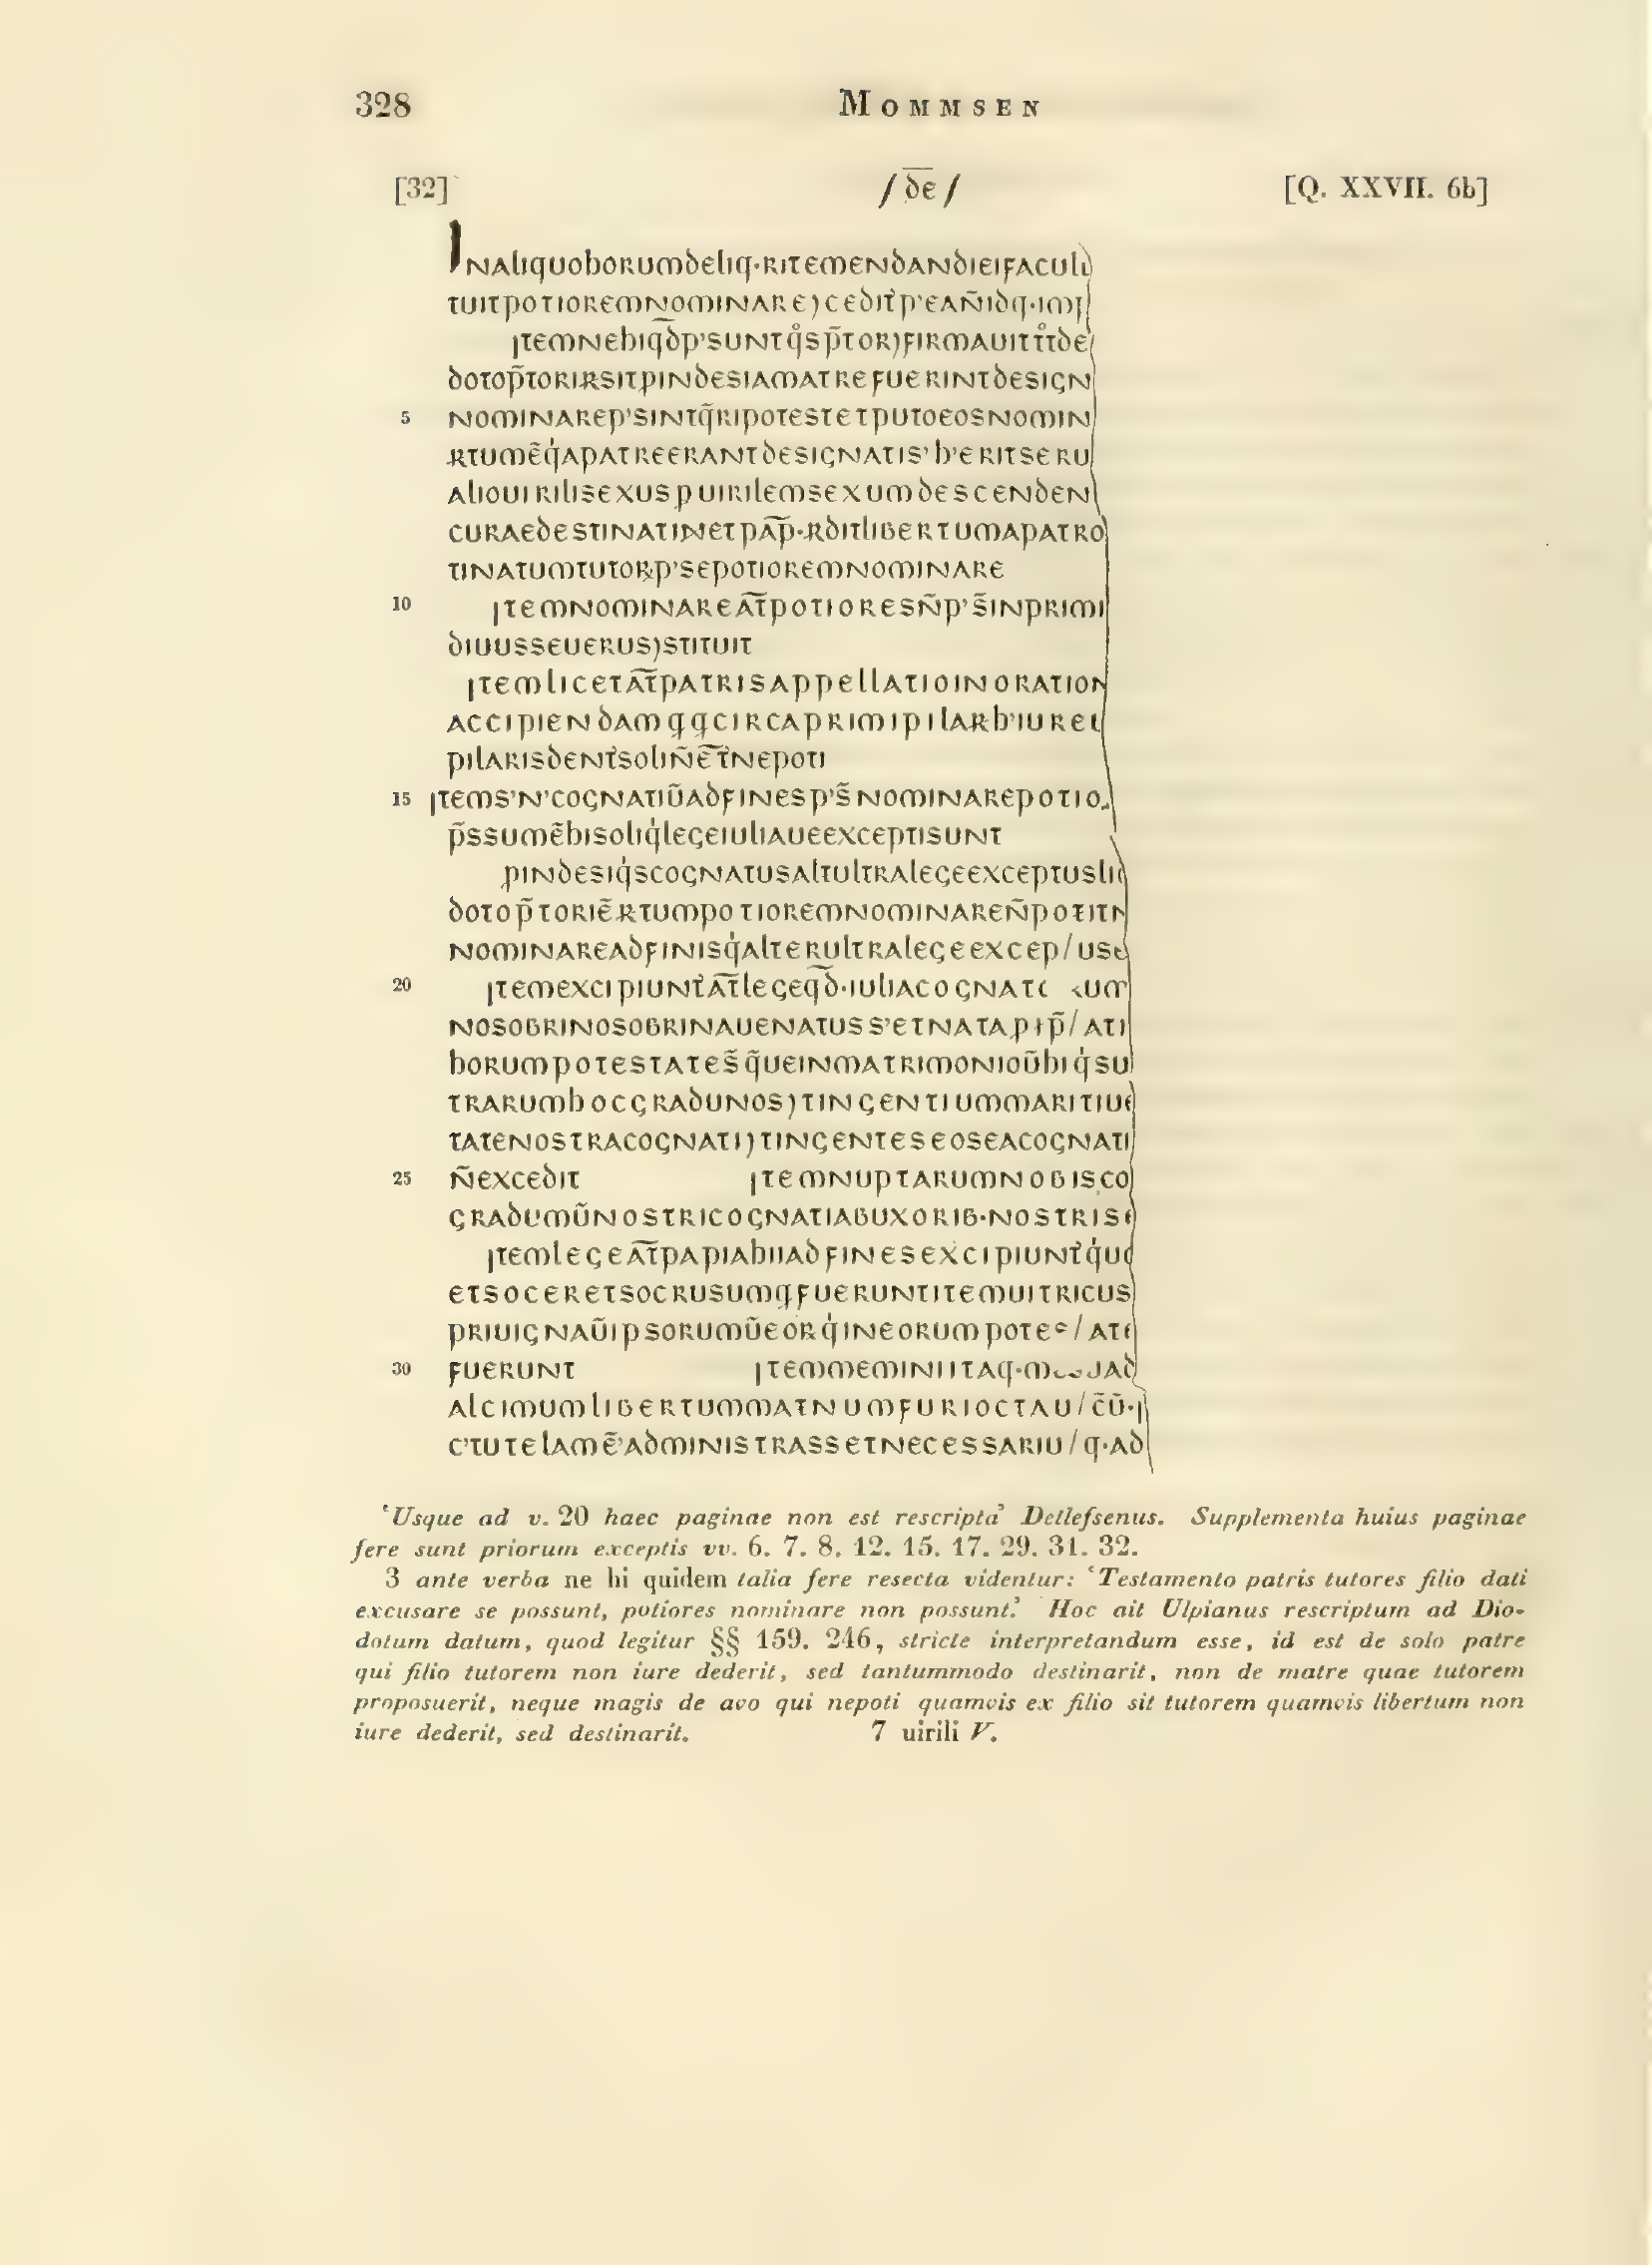 328 MOMMSEN
[32] / d̅e̅ / [Q. XXVII. 6b]
INAliquohorumdeliq·RITEMENDANDIEIFACUL
TUITPOTIOREMNOMINARE)CEDITp'EAÑIDq·IM
ITEMNEhiqd̅p'SUNTq̊Sp̄TOR)FIRMAUIT
DOTOp̄TORI
5 NOMINAREp'SINTq̄RIPOTESTETPUTOEOSNOMIN
ALIOUIRILISEXUSpUIRILEMSEXUMDESCENDEN
TINATUMTUTOR
10 ITEMNOMINAREA̅T̅POTIORESÑp'S̄INPRIMI
DIUUSSEUERUS)STITUIT
ITEMLICETA̅T̅PATRISAPPELLATIOINORATION
ACCIPIENDAMqqCIRCAPRIMIPILARh'IURE
15 ITEMS'N'COGNATIŪADFINESp'S̄NOMINAREPOTIO
p̄SSUMēhISOLIqLEGEIULIAUEEXCEPTISUNT
pINDESIqSCOGNATUSALTULTRALEGEEXCEPTUSLI
NOMINAREADFINISqALTERULTRALEGEEXCEP/US
20 ITEMEXCIPIUNTA̅T̅LEGEqd̅·IULIACOGNAT
NOSOBRINOSOBRINAUENATUSS'ETNATA
hORUMPOTESTATES̄q̄UEINMATRIMONIOŪhIqSU
TRARUMhOCGRADUNOS)TINGENTIUMMARITIU
TATENOSTRACOGNATI)TINGENTESEOSEACOGNATI
25 ÑEXCEDIT ITEMNUPTARUMNOBISCO
GRADUMŪNOSTRICOGNATIABUXORIB·NOSTRIS
ITEMLEGEA̅T̅PAPIAhIIADFINESEXCIPIUNTqU
ETSOCERETSOCRUSUMqFUERUNTITEMUITRICUS
PRIUIGNAŪIPSORUMŪEORqINEORUMPOTE
30 FUERUNT ITEMMEMINIITAq·M
ALCIMUMLIBERTUMMATNUMFURIOCTAU/C̄Ū·
C'TUTELAMē'ADMINISTRASSETNECESSARIU/q·AD
‘Usque ad v. 20 haec paginae non est rescripta’ Detlefsenus. Supplementa huius paginae
fere sunt priorum exceptis vv. 6. 7. 8. 12. 15. 17. 29. 31. 32.
3 ante verba ne hi quidem talia fere resecta videntur: ‘Testamento patris tutores filio dati
excusare se possunt, potiores nominare non possunt.’ Hoc ait Ulpianus rescriptum ad Dio-
dotum datum, quod legitur §§ 159. 246, stricte interpretandum esse, id est de solo patre
qui filio tutorem non iure dederit, sed tantummodo destinarit, non de matre quae tutorem
proposuerit, neque magis de avo qui nepoti quamvis ex filio sit tutorem quamvis libertum non
iure dederit, sed destinarit. 7 uirili V.